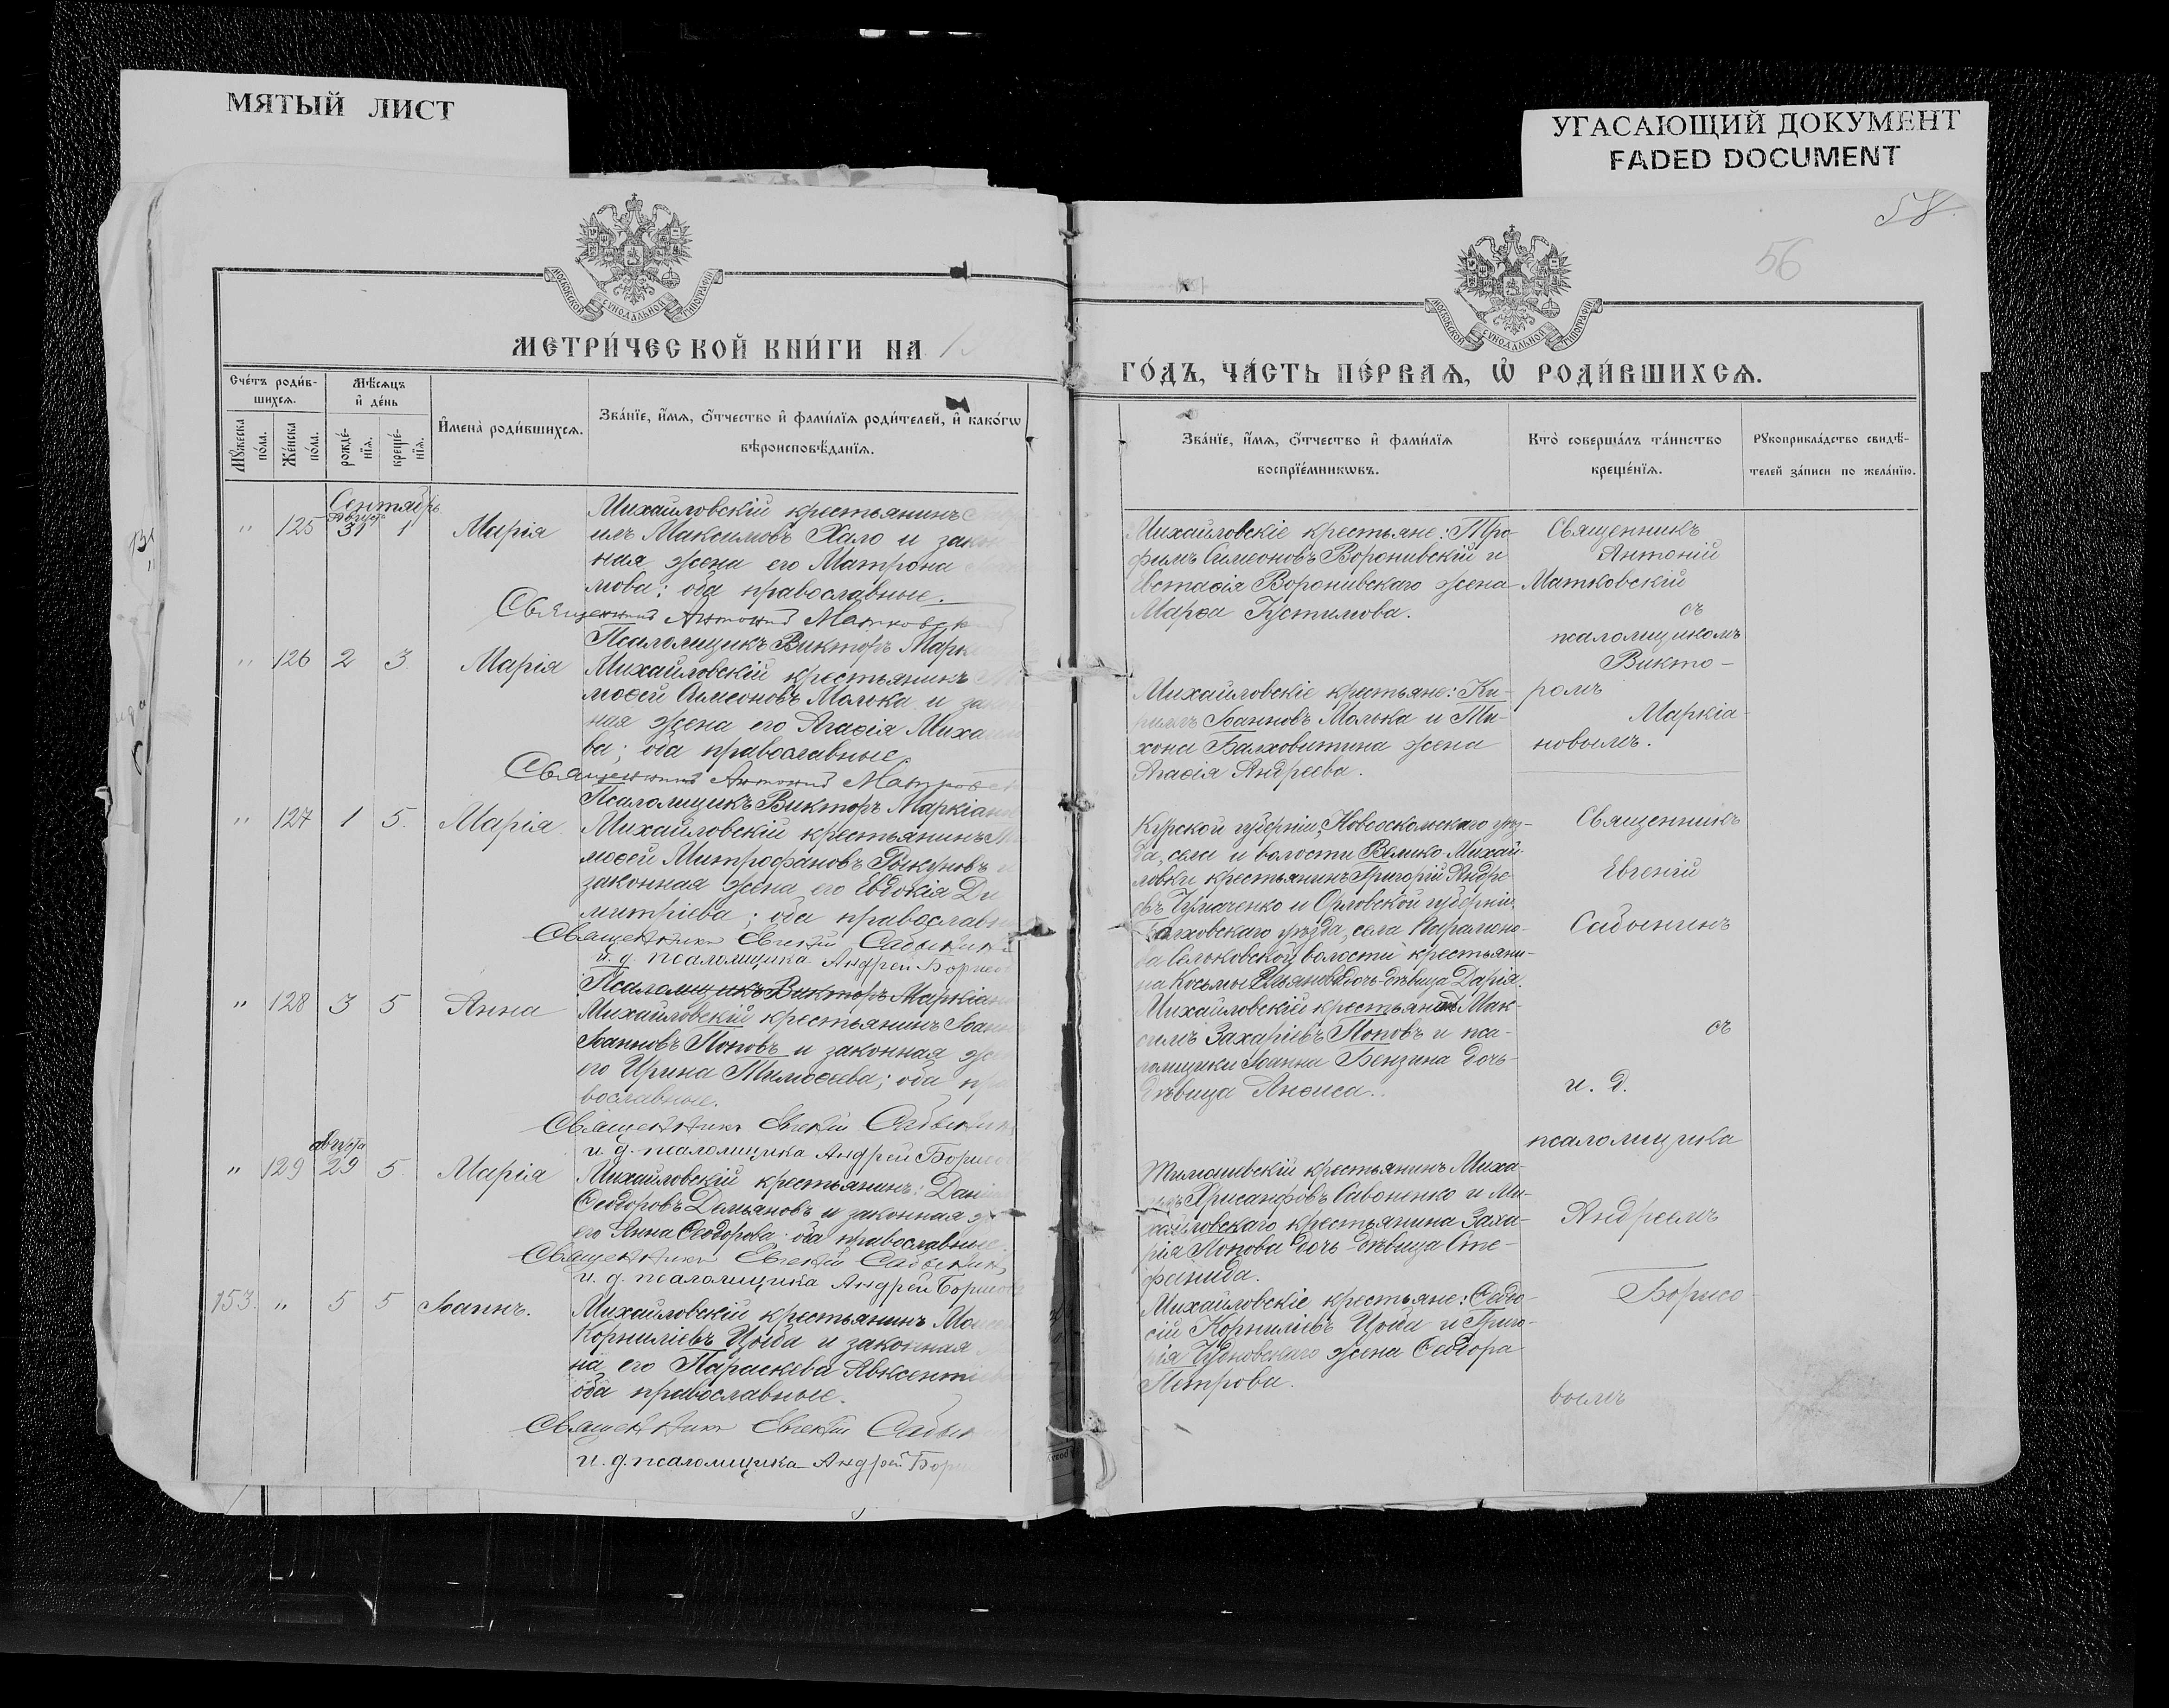 МЯТЫЙ ЛИСТ
УГАСАЮЩИЙ ДОКУМЕНТ
FADED DOCUMENT
58
56
МОСКОВСКОЙ СѴНОДАЛЬНОЙ ТИПОГРАФІИ
МОСКОВСКОЙ СѴНОДАЛЬНОЙ ТИПОГРАФІИ
МЕТРИ́ЧЕСКОЙ КНИ́ГИ НА 1
ГО́ДЪ, ЧА́СТЬ ПЕ́РВАѦ, Ѡ҆ РОДИ́ВШИХСѦ.
Сче́тъ роди́в-
шихсѧ.
Мꙋ́жеска по́ла.
Же́нска по́ла.
Мѣ́сѧцъ
и҆ де́нь
рожде́-
нїѧ.
креще́-
нїѧ.
И҆мена̀ роди́вшихсѧ.
Зва́нїе, и҆́мѧ, ѻ҆́тчество и҆ фами́лїѧ роди́телей, и҆ како́гѡ
вѣроисповѣ́данїѧ.
Зва́нїе, и҆́мѧ, ѻ҆́тчество и҆ фами́лїѧ
воспрїе́мникѡвъ.
Кто̀ соверша́лъ та́инство
креще́нїѧ.
Рꙋкоприкла́дство свидѣ́-
телей за́писи по жела́нїю.
Сентябрь
" 125 августа 31 1 Марія
Михайловскій крестьянинъ
илъ Максимовъ Хало и закон
ная жена его Матрона
мова; оба православные.
Священникъ Антоній Матковск
Псаломщикъ Викторъ Марк
Михайловскіе крестьяне: Тро-
фимъ Симеоновъ Воронивскій и
Евстафія Воронивскаго жена
Марѳа Густимова.
Священникъ
Антоній
Матковскій
съ
псаломщикомъ
Викто-
ромъ
Маркіа-
новымъ.
" 126 2 3 Марія
Михайловскій крестьянинъ
моѳей Симеоновъ Молька и закон
ная жена его Агаѳія Михай
ва; оба православные
Священникъ Антоній Матковск
Псаломщикъ Викторъ Маркіано
Михайловскіе крестьяне: Ки-
риллъ Іоанновъ Молька и Ти-
хона Балховитина жена
Агаѳія Андреева.
" 127 1 5. Марія
Михайловскій крестьянинъ
моѳей Митрофановъ Рыкуновъ и
законная жена его Евдокія Ди
митріева; оба православн
Священникъ Евгеній Садынинъ
и. д. псаломщика Андрей Борисо
Псаломщикъ Викторъ Маркіан
Курской губерніи, Новооскольскаго уѣз-
да, села и волости Велико-Михай-
ловки крестьянинъ Григорій Андре-
евъ Чумаченко и Орловской губерніи
Болховскаго уѣзда, села
волости крестьяни-
на Косьмы дочь-дѣвица Дарія.
Священникъ
Евгеній
Садынинъ
съ
и. д.
псаломщика
Андреемъ
Борисо-
вымъ
" 128 3 5 Анна
Михайловскій крестьянинъ Іоанн
Іоанновъ Поповъ и законная же
его Ирина Тимоѳеева; оба пра
вославные.
Священникъ Евгеній Садынин
и. д. псаломщика Андрей Борисо
Михайловскій крестьянинъ Мак-
симъ Захаріевъ Поповъ и пса-
ломщика Іоанна Бензина дочь-
дѣвица Анѳиса.
" 129 августа 29 5. Марія
Михайловскій крестьянинъ: Даніи
Ѳеодоровъ Демьяновъ и законная ж
его Анна Ѳеодорова: оба православные
Священникъ Евгеній Садынин
и. д. псаломщика Андрей Борисо
Тимошевскій крестьянинъ Миха-
илъ Хрисанфовъ Савоненко и Ми-
хайловскаго крестьянина Заха-
рія Попова дочь-дѣвица Сте-
фанида.
153. " 5 5 Іоаннъ.
Михайловскій крестьянинъ Мои
Корниліевъ Цыба и законная
на его Параскева Авксенті
оба православные.
Священникъ Евгеній Садын
и. д. псаломщика Андрей Бори
Михайловскіе крестьяне: Ѳеодо-
сій Корниліевъ Цыба и Григо-
рія Чудновскаго жена Ѳеодора
Петрова.